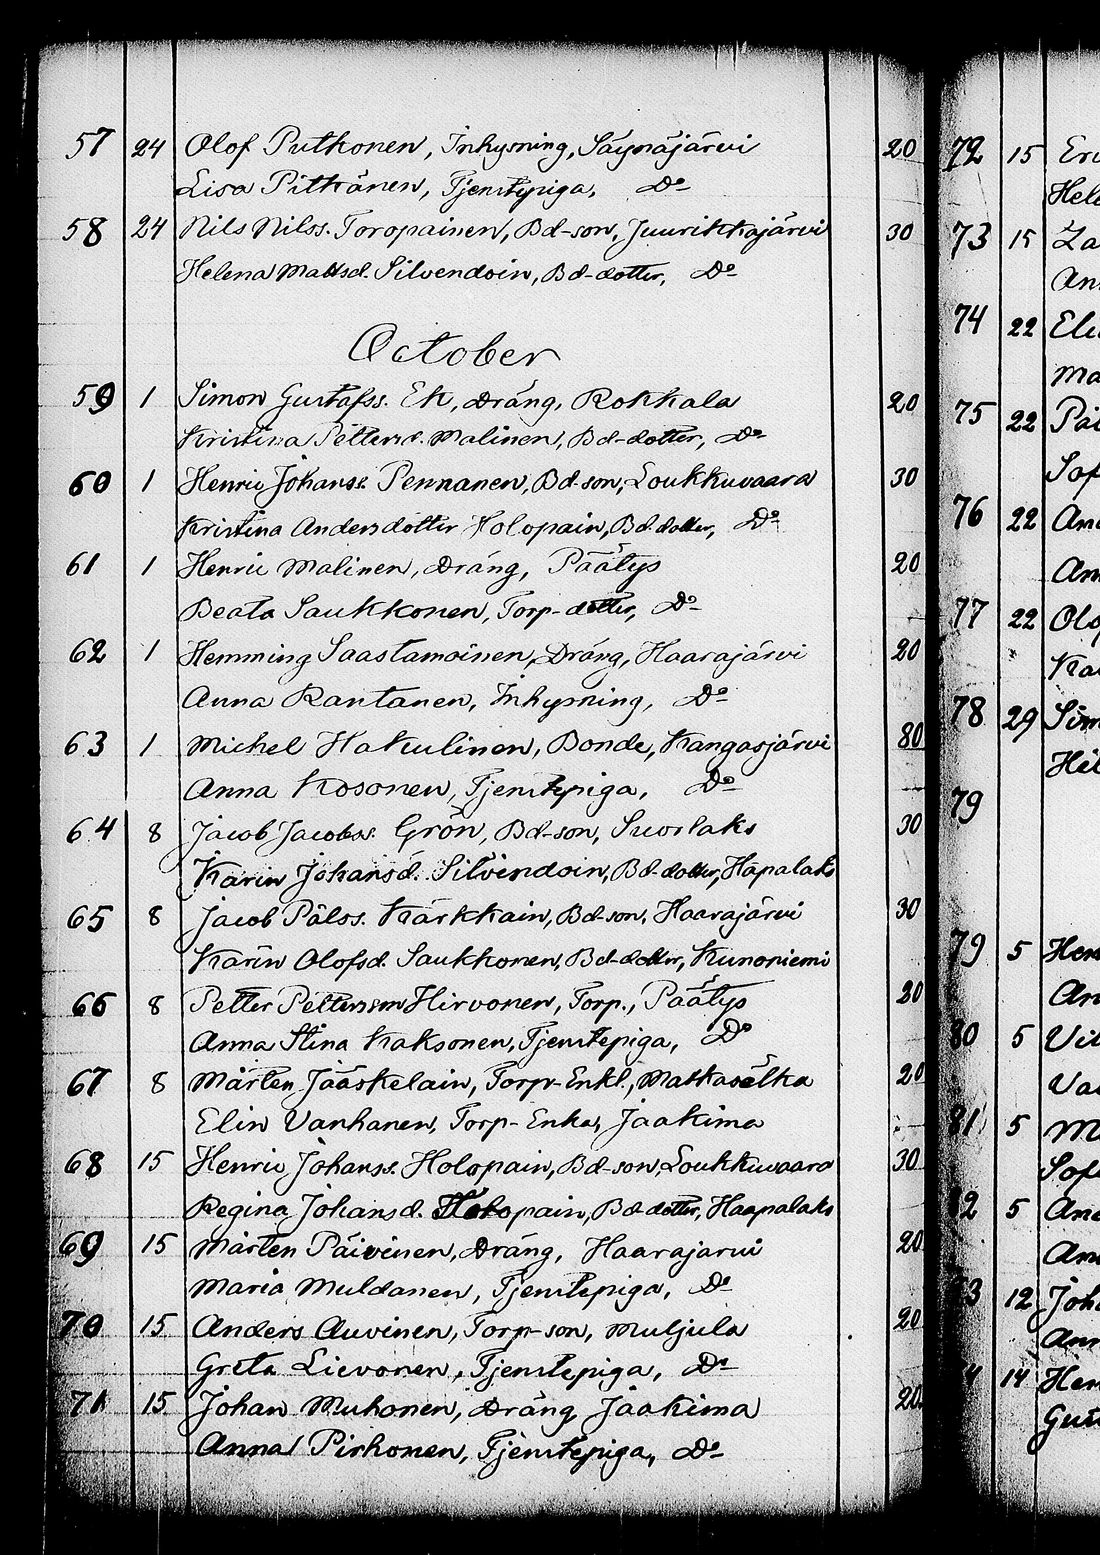 57 24 Olof Putkonen, Inhysning, Säynäjärvi 20
Lisa Pitkänen, Tjenstepiga, Do
58 24 Nils Nilss. Toropainen, Bd-son, Juurikkajärvi 30
Helena Mattsd. Silvendoin, Bd-dotter, Do
October
59 1 Simon Gustafss. Ek, Dräng, Rokkala 20
Kristina Pettersd. Malinen, Bd-dotter, Do
60 1 Henric Johanss. Pennanen, Bd-son, Loukkuvaara 30
Kristina Andersdotter Holopain, Bd-dotter, Do
61 1 Henric Malinen, Dräng, Päätys 20
Beata Saukkonen, Torp-dotter, Do
62 1 Hemming Saastamoinen, Dräng, Haarajärvi 20
Anna Rantanen, Inhysning, Do
63 1 Michel Hakulinen, Bonde, Kangasjärvi 80
Anna Kosonen, Tjenstepiga, Do
64 8 Jacob Jacobss. Grön, Bd-son, Suorlaks 30
Karin Johansd. Silvendoin, Bd-dotter, Hapalaks
65 8 Jacob Pålss. Kärkkain, Bd-son, Haarajärvi 30
Karin Olofsd. Saukkonen, Bd-dotter, Kunoniemi
66 8 Petter Pettersson Hirvonen, Torp., Päätys 20
Anna Stina Kaksonen, Tjenstepiga, Do
67 8 Mårten Jääskelain, Torp-Enkl., Matkasélka 20
Elin Vanhanen, Torp-Enka, Jaakima
68 15 Henric Johanss. Holopain, Bd-son, Loukkuvaara 30
Regina Johansd. Holopain, Bd-dotter, Haapalaks
69 15 Mårten Päivinen, Dräng, Haarajarvi 20
Maria Muldanen, Tjenstepiga, Do
70 15 Anders Auvinen, Torp-son, Muljula 20
Greta Lievonen, Tjenstepiga, Do
71 15 Johan Muhonen, Dräng Jaakima 20
Anna Pirhonen, Tjenstepiga, Do
72 15
73 15
74 22
75 22
76 22
77 22
78 29
79
79 5
80 5
81 5
5
12
14